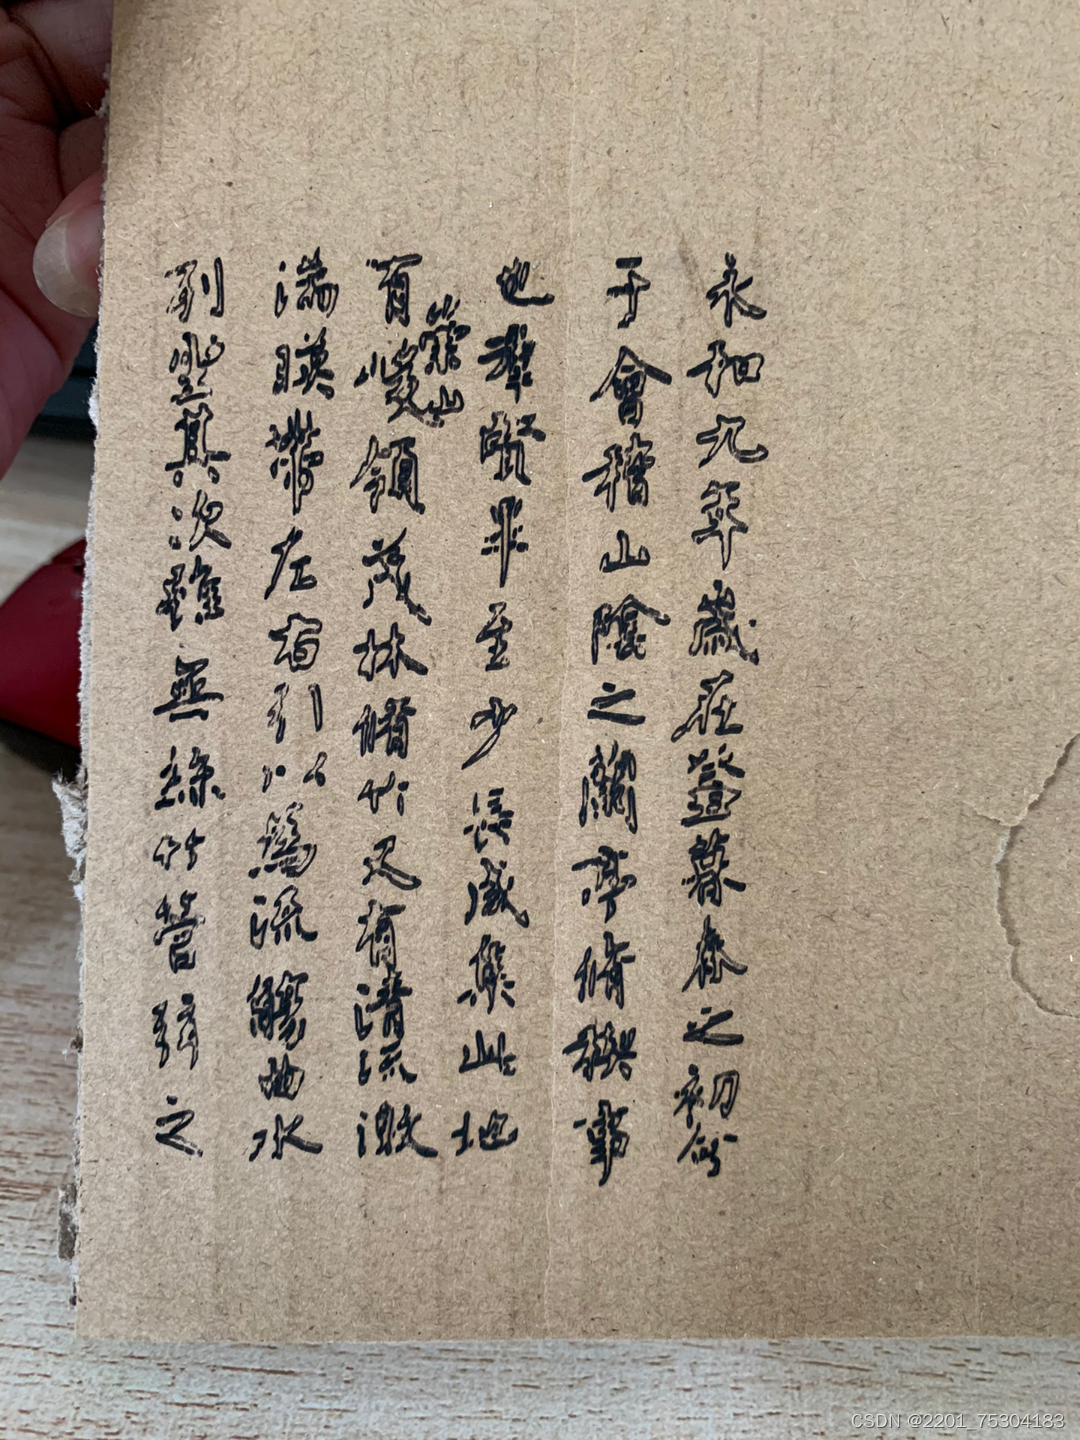 永和九年歲在癸丑暮春之初會
于會稽山陰之蘭亭脩稧事
也羣賢畢至少長咸集此地
有崇山峻領茂林脩竹又有清流激
湍暎帶左右引以為流觴曲水
列坐其次雖無絲竹管弦之
CSDN @2201_75304183